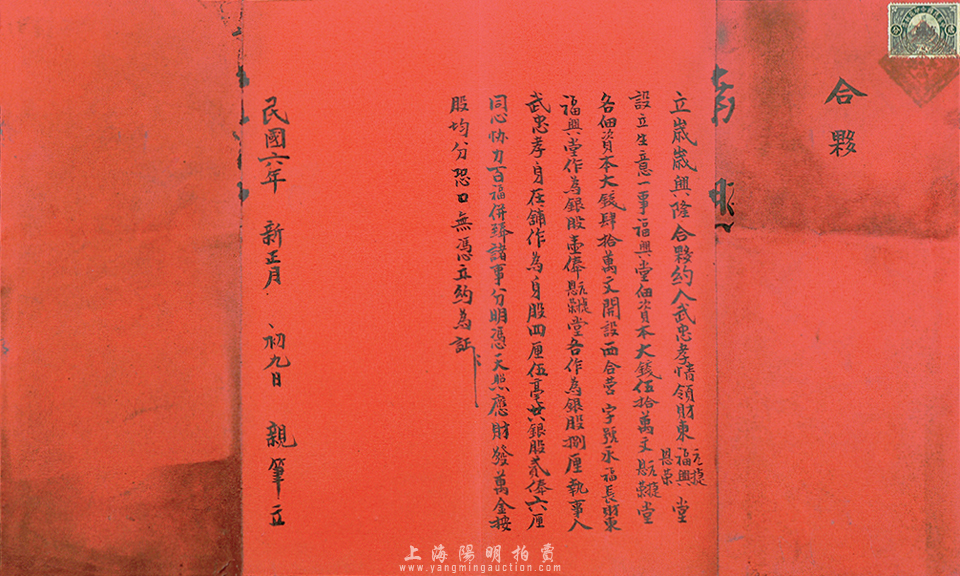 合夥
立歲歲興隆合夥約人武忠孝情領財東元捷福興恩榮堂
設立生意一事福興堂佃資本大錢伍拾萬文恩榮元捷堂
各佃資本大錢肆拾萬文開設西合營字號永福長財東
福興堂作為銀股壹俸恩榮元捷堂各作為銀股捌厘執事人
武忠孝身在舖作為身股四厘伍毫共銀股貳俸六厘
同心協力百福併臻諸事分明憑天照應財發萬金按
股均分恐口無憑立約為証
民國六年 新正月 初九日 親筆立
上海陽明拍賣
www.yangmingauction.com